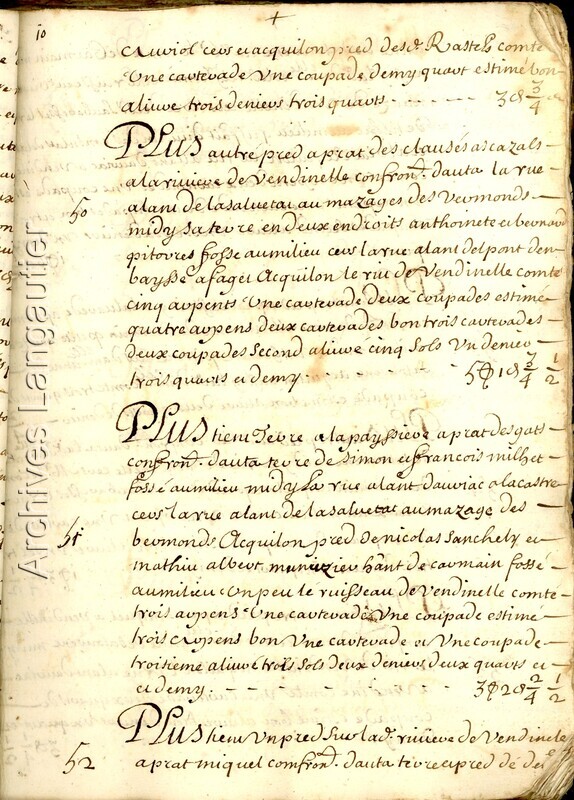 10
auviol cers et acquilon pred des d. Rastels comte
Une carterade Une coupade demy quart estimé bon
aliuvre trois deniers trois quarts - - - - 3 d 3/4
PLUS autre pred a prat des clausés as cazals
a la riviere de Vendinelle confron. d'auta la rue
alant de la salvetat au mazages des Vermonds
50
midy sa terre en deux endroits anthoinete et bernard
pitorres fosse au milieu cers la rue alant del pont den
baysse a faget Acquilon le riu de Vendinelle comte
cinq arpents Une carterade deux coupades estimé
quatre arpens deux carterades bon trois carterades
deux coupades Second aliuvré cinq sols Un denier
trois quarts et demy - - - - 5 1 d 3/4 1/2
PLUS tient Terre a la payssiere a prat des gats
confron. d'auta terre de Simon et françois milhet
fossé au milieu midy La rue alant dauriac a lacastre
cers la rue alant de la salvetat au mazage des
51
bermonds Acquilon pred de nicolas Sanchely et
mathiu albert munizier hant de carmain fossé
au milieu Un peu le ruisseau de Vendinelle comte
trois arpens Une carterade Une coupade estimé
trois arpens bon Une carterade et Une coupade
troisieme aliuvré trois sols deux deniers deux quarts et
et demy - - - - 3 2 d 2/4 1/2
PLUS tient Un pred Sur lad. riviere de Vendinelle
52
a prat miquel comfron. d'auta terre et pred de
Archives Langautier